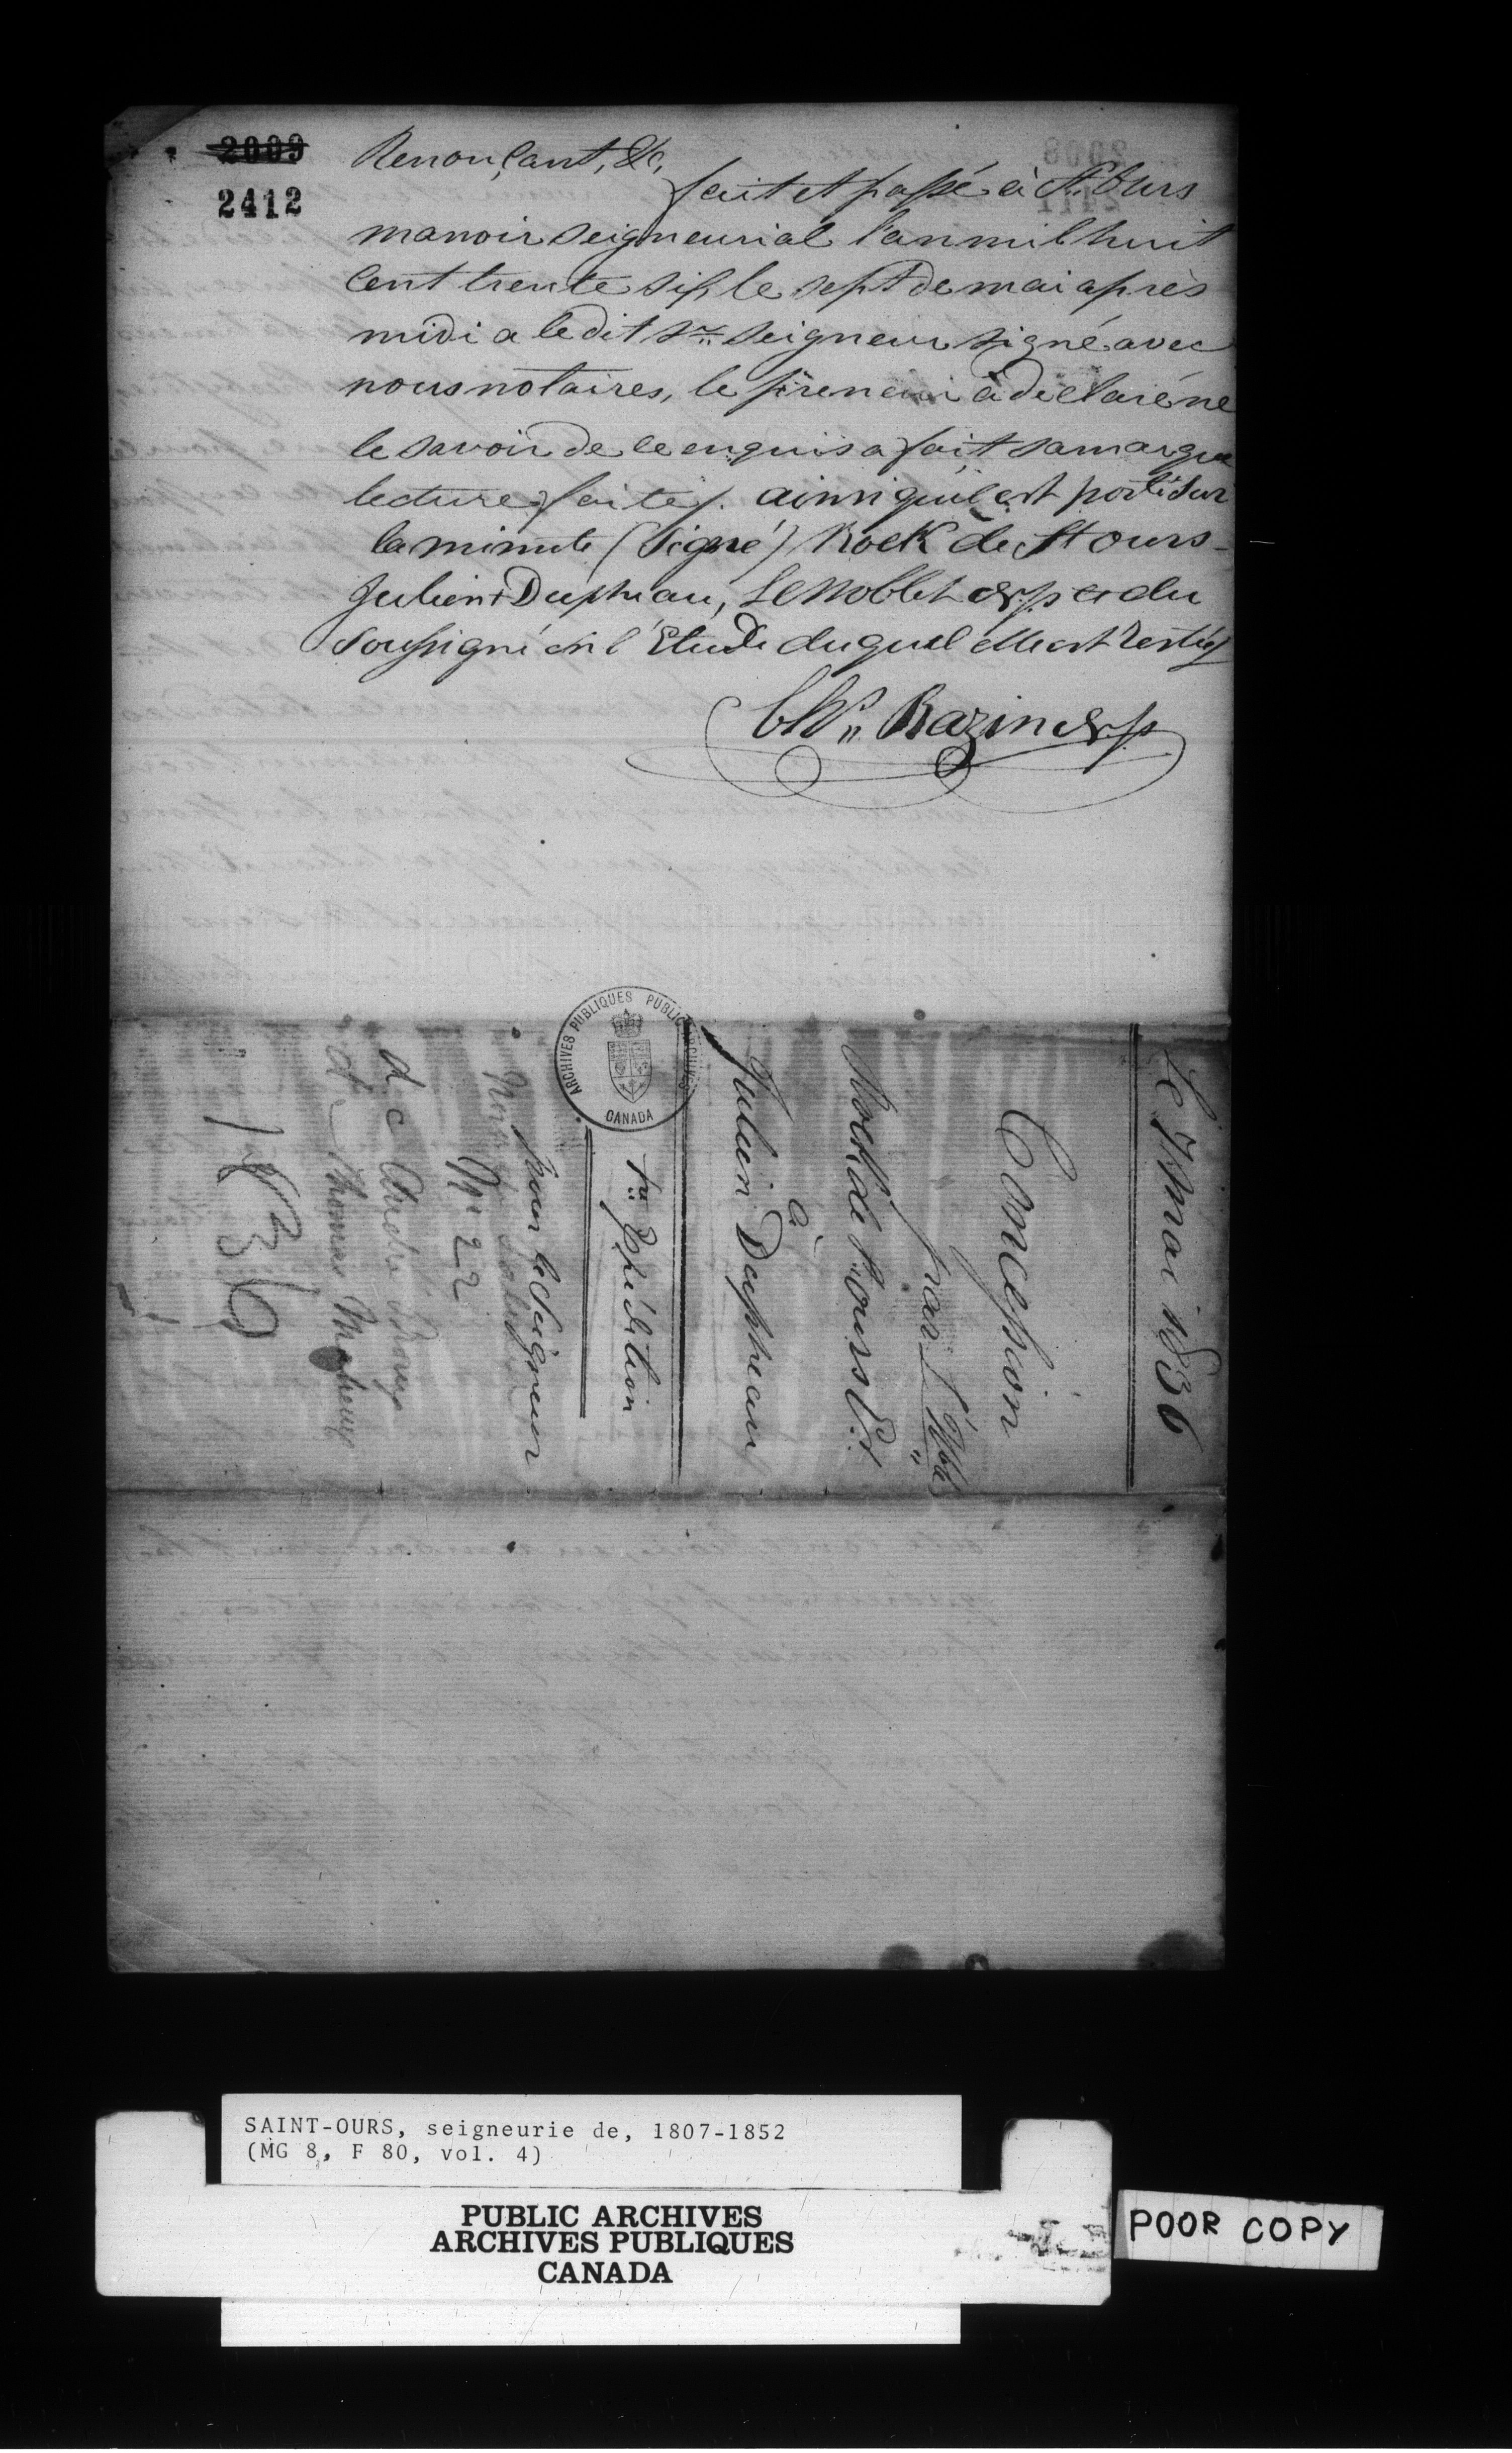 2009
2412
Renonçant, &c,
fait et passé à St. Ours
manoir seigneurial l'an mil huit
cent trente six, le sept de mai après
midi a le dit Sr. seigneur signé avec
nous notaires, le preneur a declaré ne
le savoir de ce enquis a fait sa marque
lecture faite /. ainsi qu'il est porté sur
la minute (signé) Rock de St ours -
Julien + Duphau, LeNoblet &/p et du
soussigné en l'Etude duquel elle est restée/
Chs. Bazin &/p
Le 7 mai 1836
Concession
par l'
Rock de St. ours Ec.
à
Julien Duphau
1re Expédition
pour le Seigneur
No 22
d. c André
d Thomas
1836
ARCHIVES PUBLIQUES PUBLIC ARCHIVES
CANADA
SAINT-OURS, seigneurie de, 1807-1852
(MG 8, F 80, vol. 4)
PUBLIC ARCHIVES
ARCHIVES PUBLIQUES
CANADA
POOR COPY